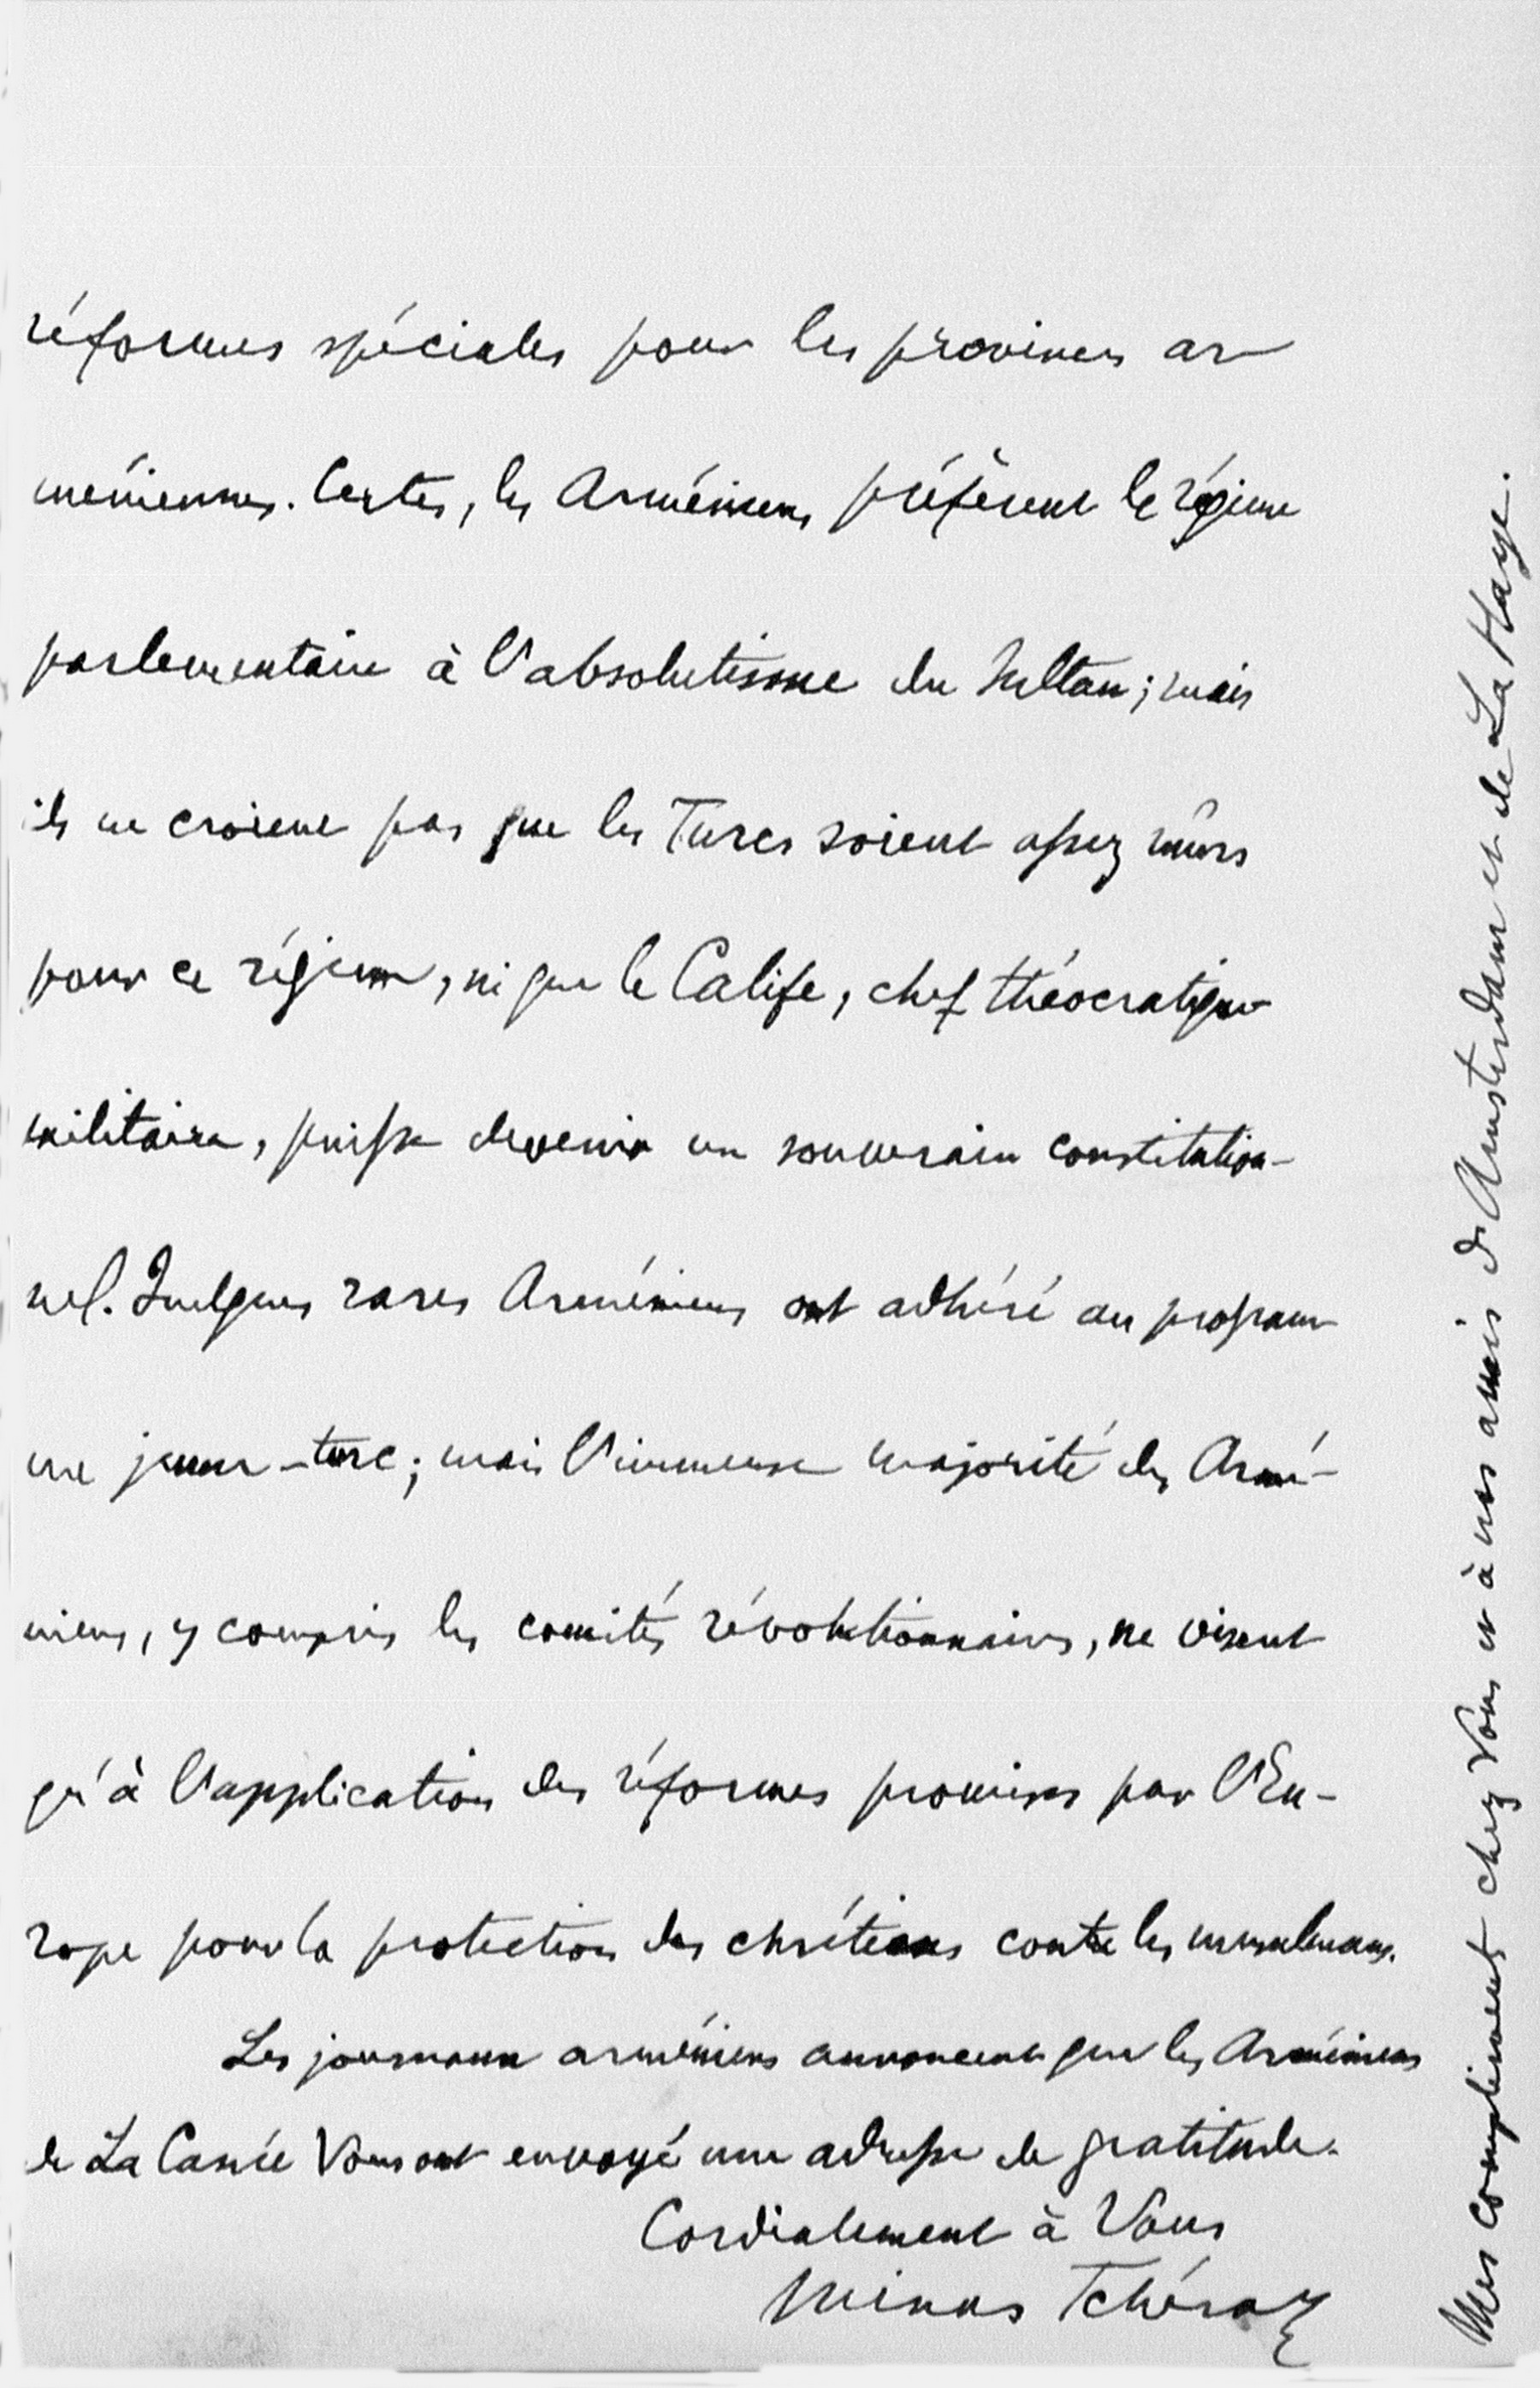 réformes spéciales pour les provinces ar-
méniennes. Certes, les Arméniens préfèrent le régime
parlementaire à l'absolutisme du Sultan; mais
ils ne croient pas que les Turcs soient assez mûrs
pour ce régime, ni que le Calife, chef théocratique
militaire, puisse devenir un souverain constitution-
nel. Quelques rares Arméniens ont adhéré au program-
me jeune-turc; mais l'immense majorité des Armé-
niens, y compris les comités révolutionnaires, ne visent
qu'à l'application des réformes promises par l'Eu-
rope pour la protection des chrétiens contre les musulmans.
Les journaux arméniens annoncent que les Arméniens
de La Canée Vous ont envoyé une adresse de gratitude.
Cordialement à Vous
Minas Tchéraz
Mes compliments chez Vous et à nos amis d'Amsterdam et de La Haye.